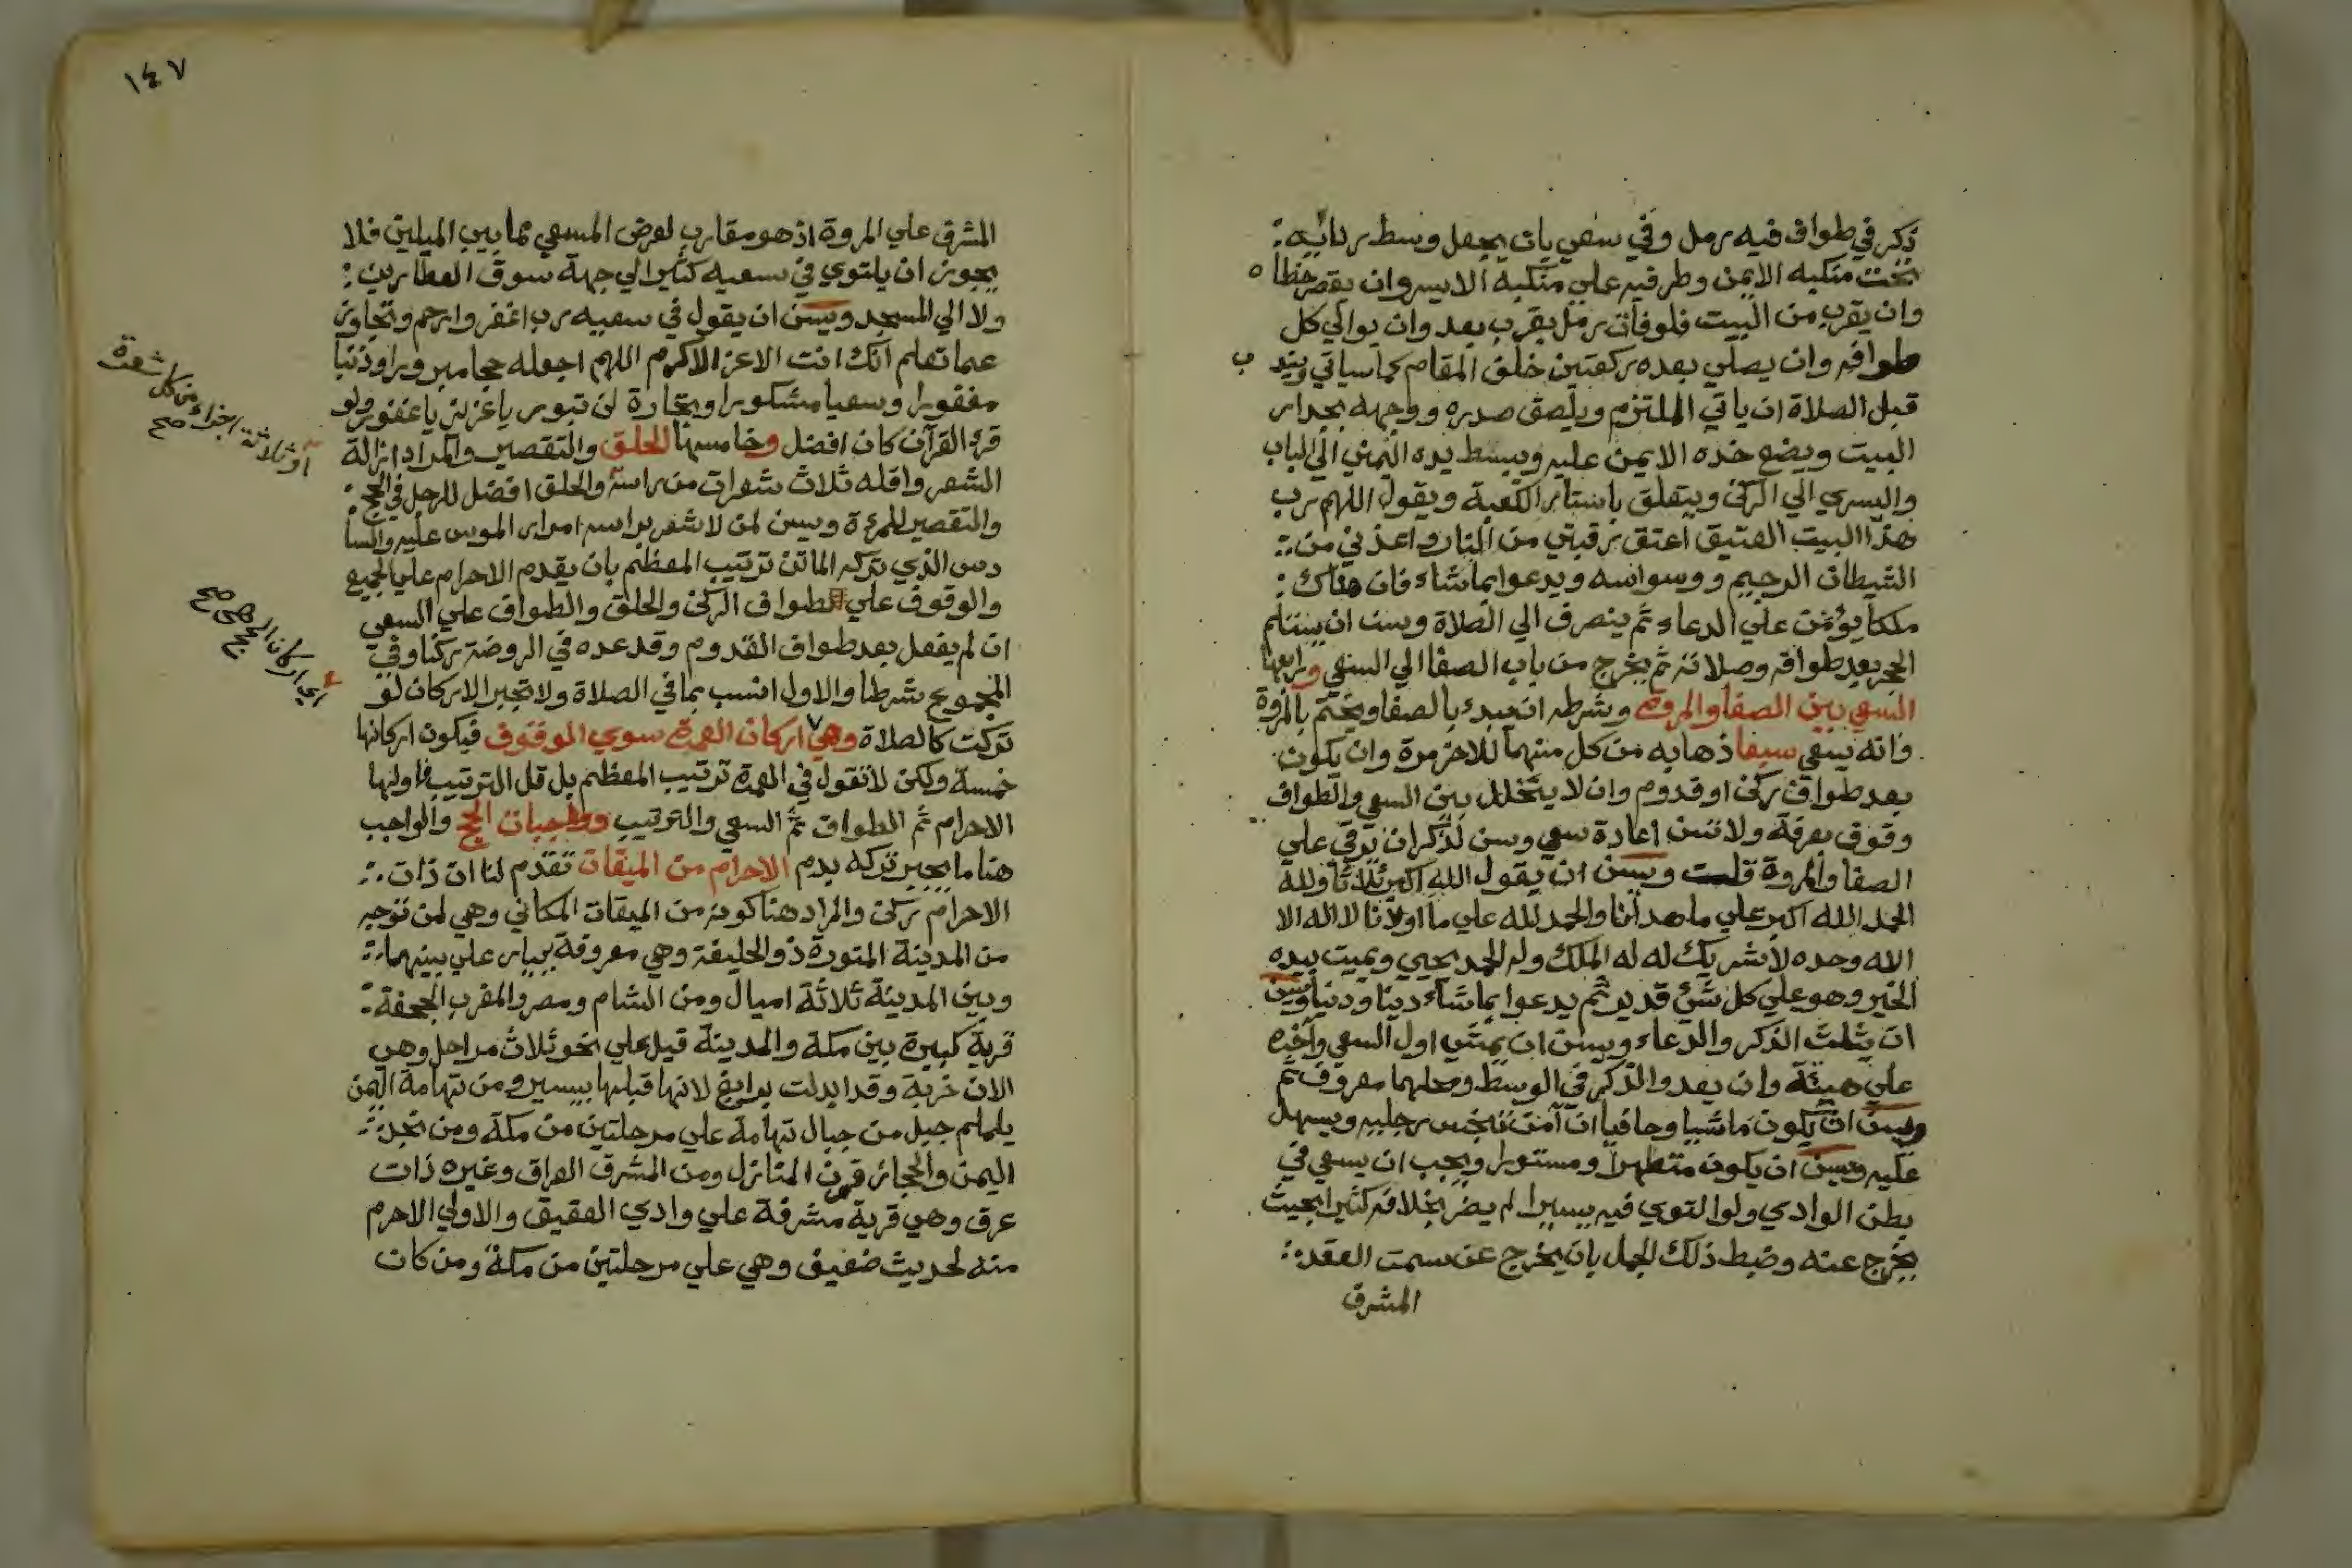 ذكر في طواف فيه رمل وفي سعي بان يجعل وسط ردائه
تحت منكبه الايمن وطرفيه علي منكبه الايسر وان يقصر خطاه
وان يقرب من البيت فلو فات رمل بقرب بعد وان يوالي كل
طوافه وان يصلي بعده ركعتين خلف المقام كما سياتي ويندب
قبل الصلاة ان ياتي الملتزم ويلصق صدره ووجهه بجدار
البيت ويضع خده الايمن عليه ويبسط يده اليمني الي الباب
واليسري الي الركن ويتعلق باستار الكعبة ويقول اللهم رب
هذا البيت العتيق اعتق رقبتي من النار واعذني من
الشيطان الرجيم ووسواسه ويدعوا بما شاء فان هناك
ملكا يؤمن علي الدعاء ثم ينصرف الي الصلاة وسن ان يستلم
الحجر بعد طوافه وصلاته ثم يخرج من باب الصفا الي السعي ورابعها
السعي بين الصفا والمروة وشرطه ان يبدء بالصفا ويختم بالمروة
وانه يسعي سبعا ذهابه من كل منهما للاخر مرة وان يكون
بعد طواف ركن او قدوم وان لا يتخلل بين السعي والطواف
وقوف بعرفة ولا تسن اعادة سعي وسن لذكر ان يرقي علي
الصفا والمروة قامت ويسن ان يقول الله اكبر ثلاثا ولله
الحمد الله اكبر علي ما هدانا والحمد لله علي ما اولانا لا اله الا
الله وحده لا شريك له له الملك وله الحمد يحيي ويميت بيده
الخير وهو علي كل شئ قدير ثم يدعوا بما شاء دينا ودنيا ويسن
ان يثلث الذكر والدعاء ويسن ان يمشي اول السعي واخره
علي هيئة وان يعدو الذكر في الوسط ومحلهما معروف ثم
ويسن ان يكون ماشيا وحافيا ان آمن تنجس رجليه ويسهل
عليه ويسن ان يكون متطهرا ومستورا ويجب ان يسعي في
بطن الوادي ولو التوي فيه يسيرا لم يضر بخلافه كثيرا بحيث
يخرج عنه وضبط ذلك الجمل بان يخرج عن سمت العقد
المشرف
١٤٧
المشرف علي المروة اذ هو مقارب لعرض المسعي مما بين الميلين فلا
يجوز ان يلتوي في سعيه كثيرا الي جهة سوق العطارين
ولا الي المسجد ويسن ان يقول في سعيه رب اغفر وارحم وتجاوز
عما تعلم انك انت الاعز الاكرم اللهم اجعله حجا مبرورا وذنبا
مغفورا وسعيا مشكورا وتجارة لن تبور يا عزيز يا غفور ولو
قرء القرآن كان افضل وخامسها الحلق والتقصير والمراد ازالة
الشعر واقله ثلاث شعرات من راسه والحلق افضل للرجل في الحج
والتقصير للمرءة ويسن لمن لا شعر براسه امرار الموس عليه والسا
دس الذي تركه الماتن ترتيب المعظم بان يقدم الاحرام علي الجميع
والوقوف علي طواف الركن والحلق والطواف علي السعي
ان لم يفعل بعد طواف القدوم وقد عده في الروضة ركنا وفي
المجموع شرطا والاول انسب بما في الصلاة ولا تجبر الاركان لو
تركت كالصلاة وهي اركان العمرة سوي الوقوف فيكون اركانها
خمسة ولكن لا تقول في العمرة ترتيب المعظم بل قل الترتيب فاولها
الاحرام ثم الطواف ثم السعي والترتيب وواجبات الحج والواجب
هنا ما يجبر تركه بدم الاحرام من الميقات تقدم لنا ان ذات
الاحرام ركن والمراد هنا كونه من الميقات المكاني وهي لمن توجه
من المدينة المنورة ذو الحليفة وهي معروفة ببيار علي بينهما
وبين المدينة ثلاثة اميال ومن الشام ومصر والمغرب الجحفة
قرية كبيرة بين مكة والمدينة قيل علي نحو ثلاث مراحل وهي
الان خربة وقد ابدلت برابغ لانها قبلها بيسير ومن تهامة اليمن
يلملم جبل من جبال تهامة علي مرحلتين من مكة ومن نجد
اليمن والحجاز قرن المنازل ومن المشرق العراق وغيره ذات
عرق وهي قرية مشرفة علي وادي العقيق والاولي الاحرم
منه لحديث ضعيف وهي علي مرحلتين من مكة ومن كان
او ثلاثة اجزاء من كل شعرة
صح
اي اركان الحج صح